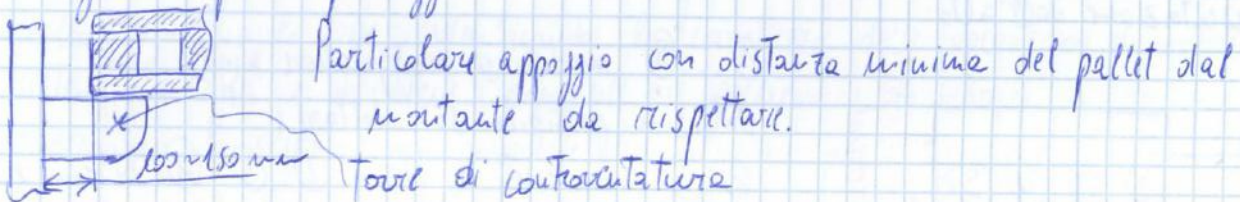 Particolare appoggio con distanza minima del pallet dal
montante da rispettare.
100÷150 mm
Torre di controventatura